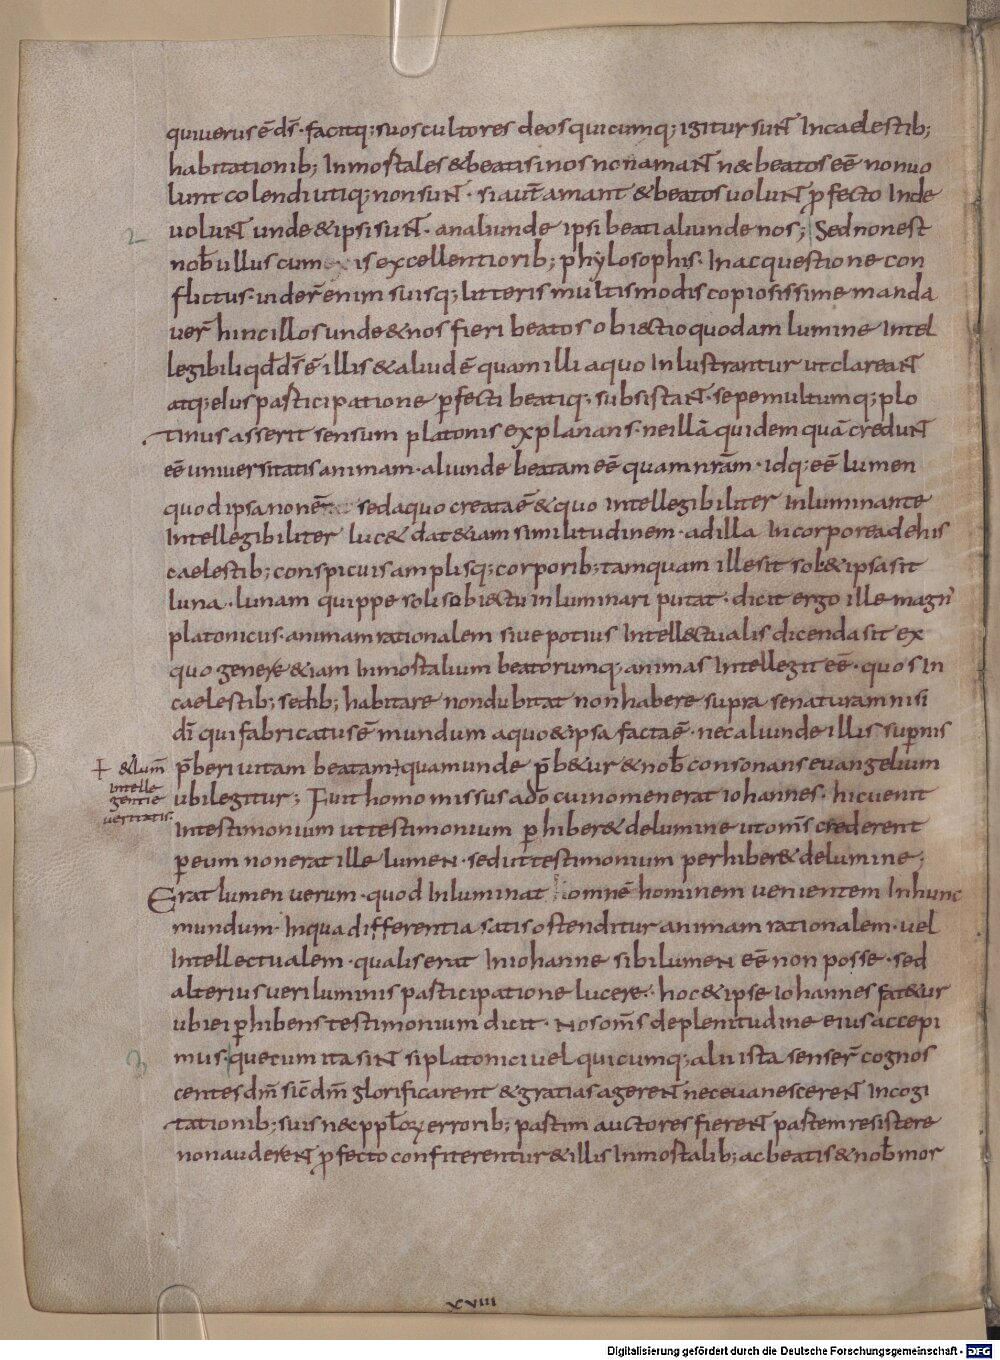 quiuerus ē d̄s · facitq; suos cultores deos quicumq; igitur sunt Incaelestib;
habitationib; Inmortales &beatis inos non amant n& beatos eē nonuo
lunt colendi utiq; non sunt · si aut̄ amant &beatos uolunt p̱fecto Inde
2 uolunt unde &ipsi sunt · analiunde ipsi beati aliunde nos; Sed non est
nob̄ ullus cum is excellentiorib; phylosophis · In ac questione con
flictus · uider̄ enim suisq; litteris multis modis copiosissime manda
uer̄ hinc illos unde &nos fieri beatos obiectio quodam lumine Intel
legibili qd̄ d̄s ē illis &aliud ē quam illi aquo Inlustrantur utclareant
atq; eius participatione p̱fecti beatiq; subsistant · sepe multumq; plo
tinus asserit sensum platonis explanans · ne illā quidem quā credunt
eē uniuersitatis animam · aliunde beatam eē quam nr̄am · idq; eē lumen
quod ipsa non ē sed aquo creata ē &quo Intellegibiliter Inluminante
Intellegibiliter luc& dat &iam similitudinem · ad illa Incorporea dehis
caelestib; conspicuis amplisq; corporib; tamquam ille sit sol &ipsa sit
luna · lunam quippe solis obiectu inluminari putat · dicit ergo ille magn̄
platonicus · animam rationalem siue potius Intellectualis dicenda sit ex
quo genere &iam Inmortalium beatorumq; animas Intellegit eē · quos In
caelestib; sedib; habitare non dubitat non habere supra se naturam nisi
d̄i qui fabricatus ē mundum aquo &ipsa facta ē · nec aliunde illis sup̱nis
p̄beri uitam beatam + quam unde p̄b&ur &nob̄ consonans euangelium
+ &lum̄
intelle
gentie
ueritatis
ubi legitur; Fuit homo missus ad̄o cui nomen erat iohannes · hic uenit
Intestimonium ut testimonium p̱hiber& delumine ut om̄s crederent
p̱ eum non erat ille lumen · sed ut testimonium perhiber& delumine;
Erat lumen uerum · quod Inluminat omnē hominem uenientem Inhunc
mundum · Inqua differentia satis ostenditur animam rationalem · uel
Intellectualem · qualis erat Iniohanne sibi lumen eē non posse · sed
alterius ueri luminis participatione lucere · hoc &ipse iohannes fat&ur
ubi ei p̱hibens testimonium dicit · Nos om̄s deplenitudine eius accepi
3 mus · que cum ita sint si platonici uel quicumq; alii ista senser̄ cognos
centes dm̄ sic̄ dm̄ glorificarent &gratias agerent nec euanescerent Incogi
tationib; suis n&c pplōꝝ errorib; partim auctores fierent partem resistere
non auderent p̱fecto confiterentur &illis Inmortalib; ac beatis &nob̄ mor
xviii
Digitalisierung gefördert durch die Deutsche Forschungsgemeinschaft - DFG